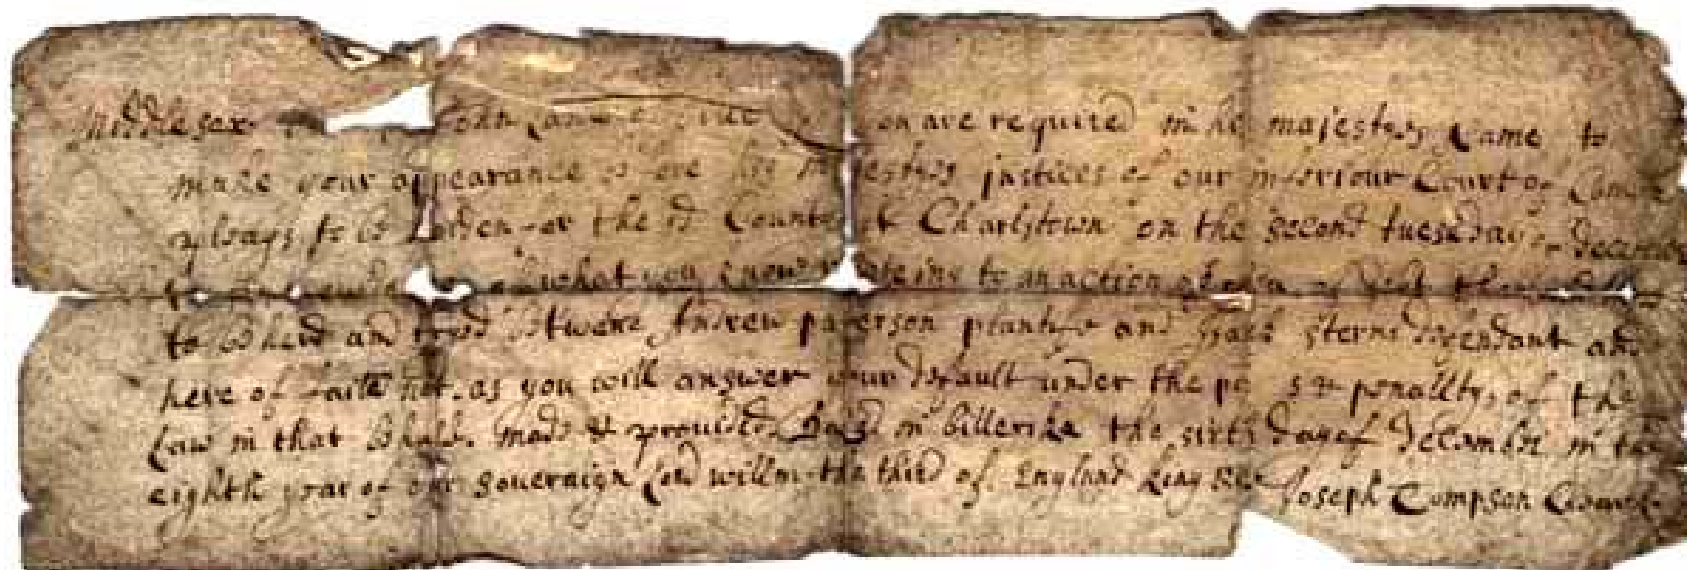 Middlesex John are required in his majestys name to
make your appearance before his majestys justices of our inferiour Court of Common
pleays to be holden for the sd County at Charlstown on the second tuesday of december
what you know to an action of
to be herd and tried betwene Andrew paterson plantife and Isaac sterns defendant and
here of faile not. as you will answer your default under the pains & penallty, of the
Law in that behalf. made & provided. Dated in billerika the sixth day of decembr in the
eighth year of our soueraign Lord willm the third of England king &c Joseph Tompson